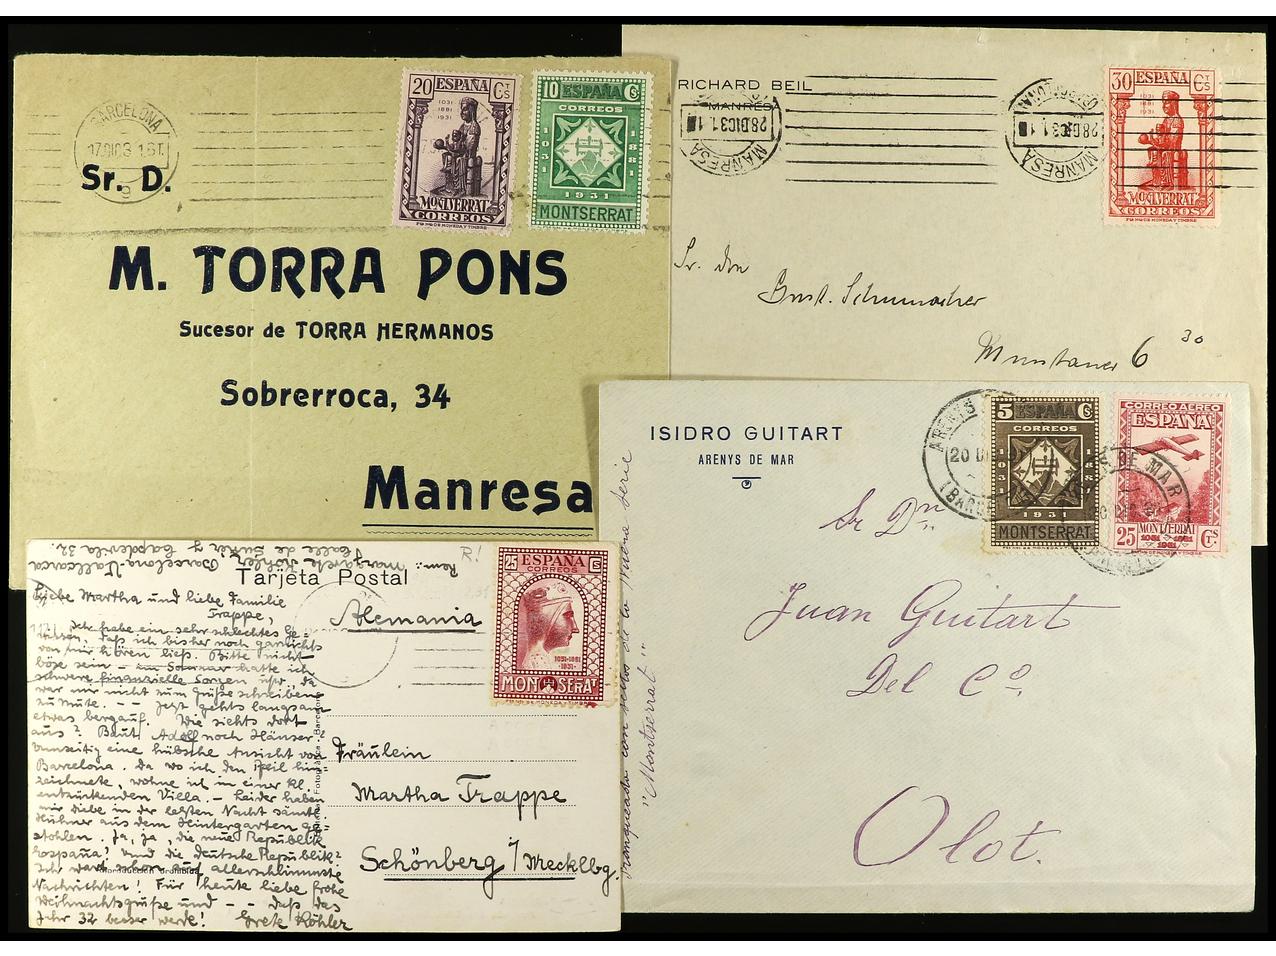 BARCELONA
17.DIC3 1.6T.
9
20 ESPAÑA CTS
1031
1881
1931
MONTSERRAT
CORREOS
FCA NAL DE MONEDA Y TIMBRE
10 ESPAÑA Cs
CORREOS
1031 1881
1931
MONTSERRAT
Sr. D.
M. TORRA PONS
Sucesor de TORRA HERMANOS
Sobrerroca, 34
Manresa
RICHARD BEIL
MANRESA
28.DIC31.1
MANRESA
28.DIC31.1
MANRESA
30 ESPAÑA CTS
1031
1881
1931
MONTSERRAT
CORREOS
Sr. don
Gust. Schumacher
Muntaner 6 30
ISIDRO GUITART
ARENYS DE MAR
ARENYS
20 DI
5 ESPAÑA C
CORREOS
1931
MONTSERRAT
CORREO AEREO
ESPAÑA
MONTSERRAT
25 1031 1881 1931 Cs
DE MAR
Sr Dn
Juan Guitart
Del Cº.
Olot.
Franqueado con sellos de la Nueva serie
"Montserrat"
Rem.: Margarete Köhler Barcelona-Vallcarca
Calle de Suñer y Capdevila 32.
R!
Tarjeta Postal
Alemania
25 ESPAÑA Cs
CORREOS
1031-1881
-1931-
MONTSERRAT
Liebe Martha und liebe Familie
Trappe,
Ich habe ein sehr schlechtes Ge-
wissen, daß ich bisher noch garnichts
von mir hören ließ. Bitte nicht
böse sein - im Sommer hatte ich
schwere finanzielle Sorgen usw., da
war mir nicht zum Grüße schreiben
zu Mute. -- Jetzt gehts langsam
etwas bergauf. Wie siehts dort
aus? Baut Adolf noch Häuser?
Umseitig eine hübsche Ansicht von
Barcelona. Da wo ich den Pfeil hin-
zeichnete, wohne ich in einer kl.
entzückenden Villa. - Leider haben
mir Diebe in der letzten Nacht sämtl.
Hühner aus dem Hintergarten ge-
stohlen. Ja, ja, die neue Republik
España! Und die deutsche Republik?
Ich war schon auf allerschlimmste
Nachrichten! Für heute liebe frohe
Weihnachtsgrüße und -- daß das
Jahr 32 besser werde! Grete Köhler
Fräulein
Martha Trappe
Schönberg i/Mecklbg.